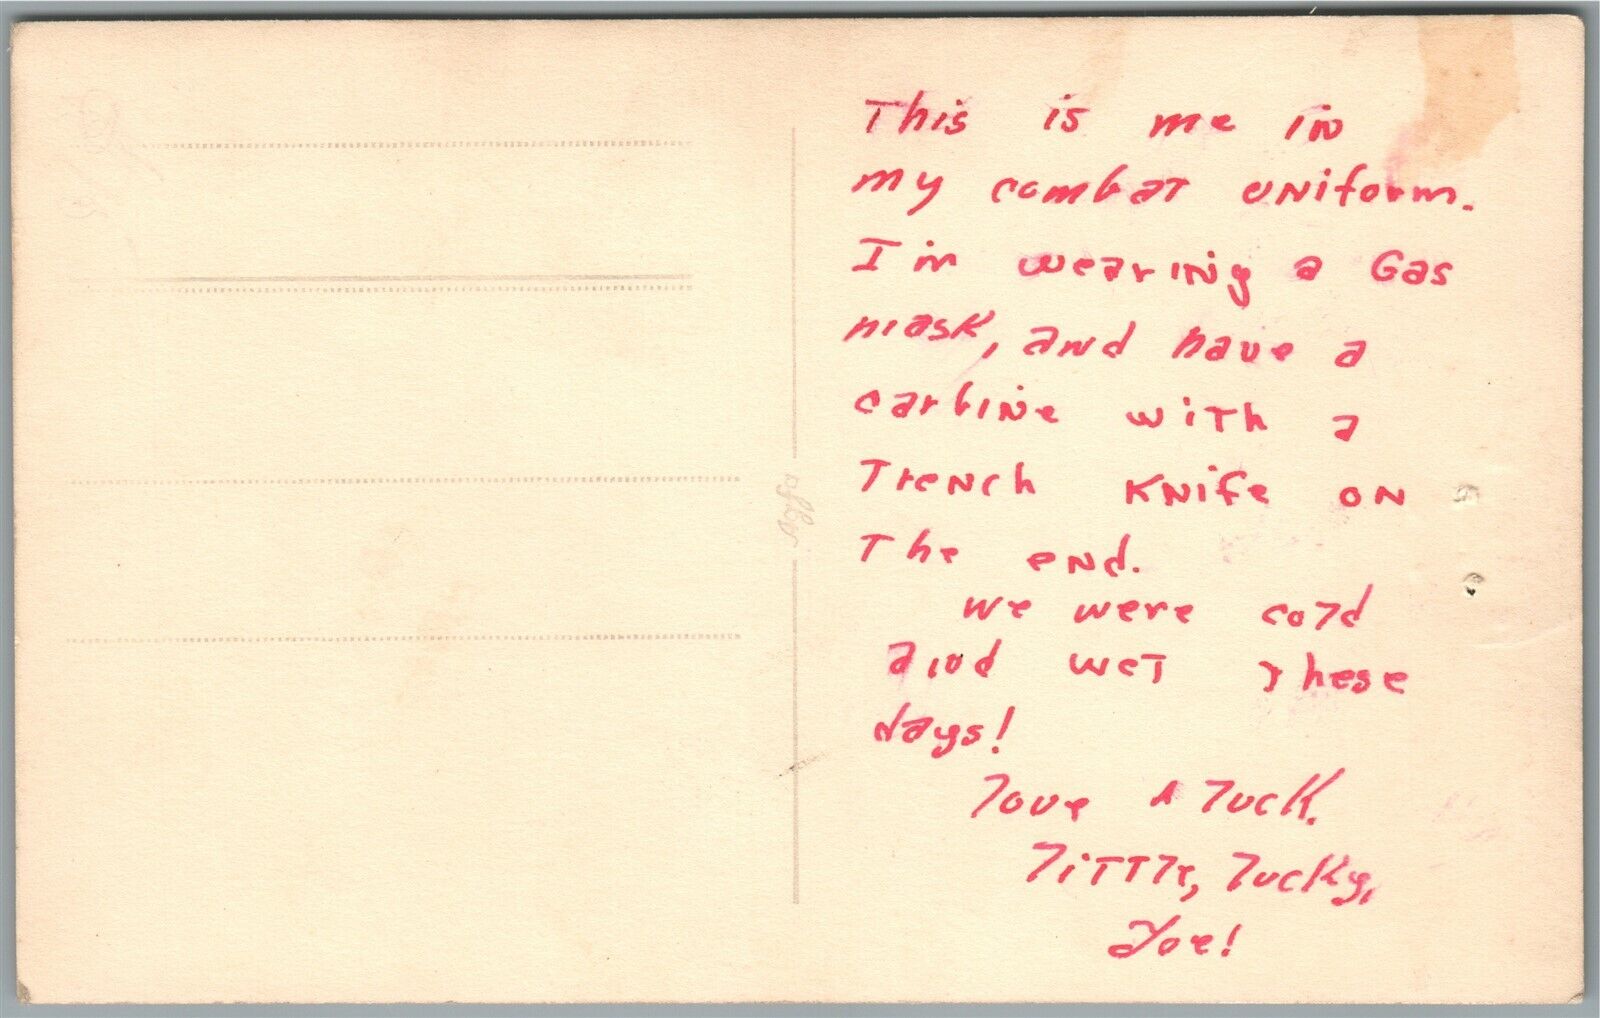 This is me in
my combat uniform.
I'm wearing a Gas
mask, and have a
carbine with a
Trench Knife on
The end.
We were cold
and wet these
days!
Love & luck.
Little, Lucky,
Joe!
Agfa